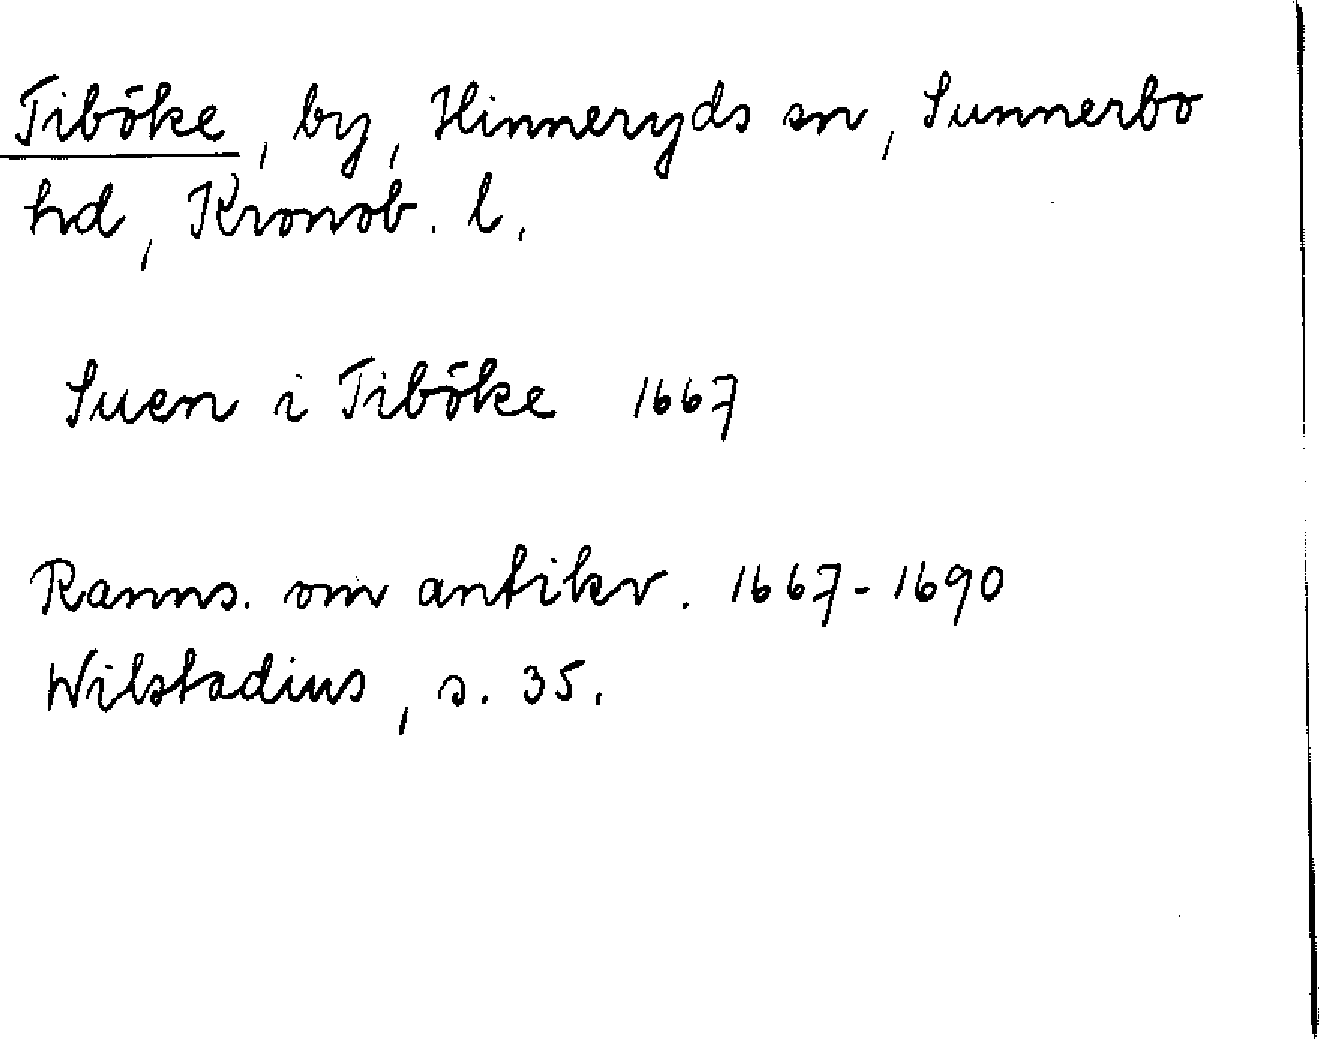 Tiböke, by, Hinneryds sn, Sunnerbo
hd, Kronob. l.
Suen i Tiböke 1667
Ranns. om antikv. 1667-1690
Wilstadius, s. 35.